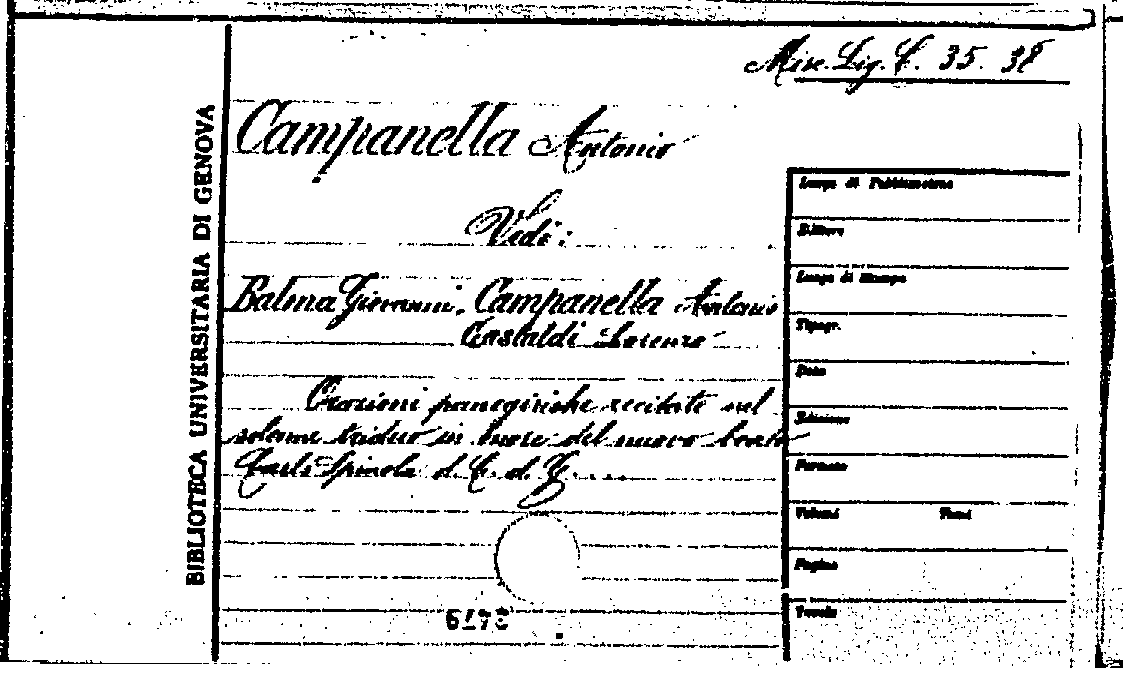 Misc. Lig. C. 35. 38
Campanella Antonio
Vedi:
Balma Giovanni. Campanella Antonio
Gastaldi Lorenzo
Orazioni panegiriche recitate nel
solenne triduo in onore del nuovo beato
Carlo Spinola d. C. d. G. ....
BIBLIOTECA UNIVERSITARIA DI GENOVA
Luogo di Pubblicazione
Editore
Luogo di Stampa
Tipogr.
Data
Edizione
Formato
Volumi Tomi
Pagine
Tavole